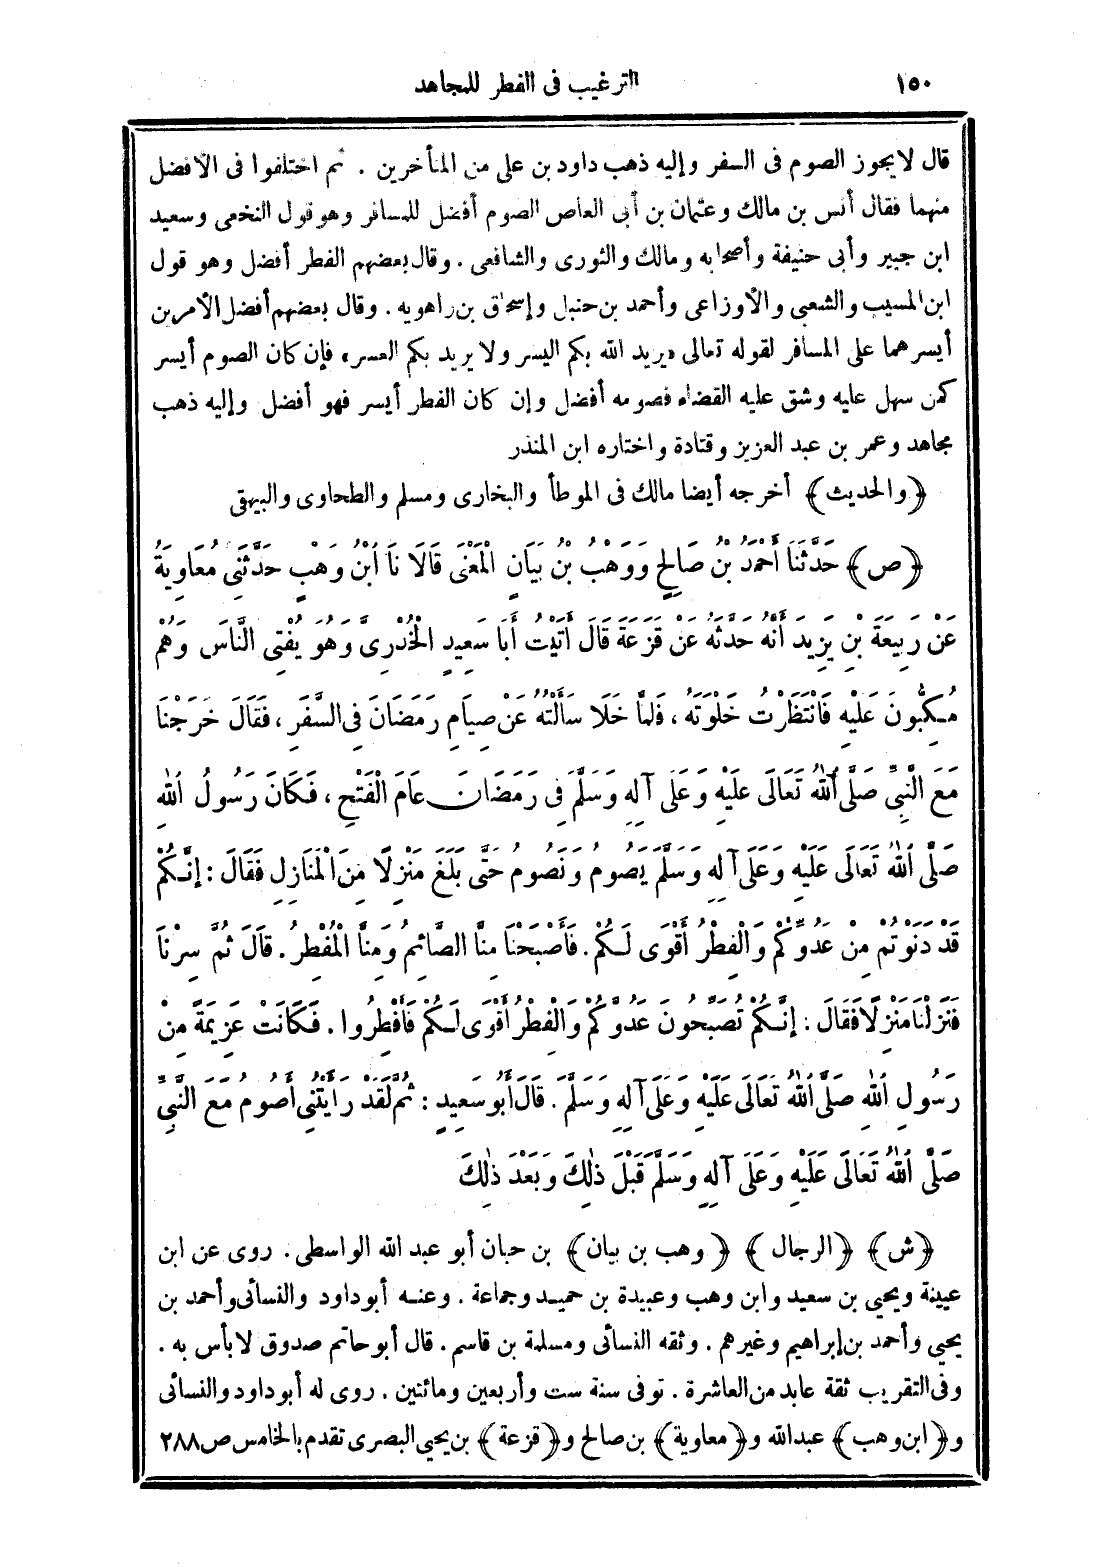 ١٥٠ الترغيب فى الفطر للمجاهد
قال لايجوز الصوم فى السفر وإليه ذهب داود بن على من المتأخرين . ثم اختلفوا فى الأفضل
منهما فقال أنس بن مالك وعثمان بن أبى العاص الصوم أفضل للمسافر وهو قول النخعى وسعيد
ابن جبير وأبى حنيفة وأصحابه ومالك والثورى والشافعى . وقال بعضهم الفطر أفضل وهو قول
ابن المسيب والشعبى والأوزاعى وأحمد بن حنبل وإسحاق بن راهويه . وقال بعضهم أفضل الأمرين
أيسرهما على المسافر لقوله تعالى «يريد الله بكم اليسر ولا يريد بكم العسر» فإن كان الصوم أيسر
كمن سهل عليه وشق عليه القضاء فصومه أفضل وإن كان الفطر أيسر فهو أفضل وإليه ذهب
مجاهد وعمر بن عبد العزيز وقتادة واختاره ابن المنذر
﴿والحديث﴾ أخرجه أيضا مالك فى الموطأ والبخارى ومسلم والطحاوى والبيهقى
﴿ص﴾ حَدَّثَنَا أَحْمَدُ بْنُ صَالِحٍ وَوَهْبُ بْنُ بَيَانٍ الْمَعْنَى قَالَا نَا ابْنُ وَهْبٍ حَدَّثَنِى مُعَاوِيَةُ
عَنْ رَبِيعَةَ بْنِ يَزِيدَ أَنَّهُ حَدَّثَهُ عَنْ قَزَعَةَ قَالَ أَتَيْتُ أَبَا سَعِيدٍ الْخُدْرِىَّ وَهُوَ يُفْتِى النَّاسَ وَهُمْ
مُكِبُّونَ عَلَيْهِ فَانْتَظَرْتُ خَلْوَتَهُ ، فَلَمَّا خَلَا سَأَلْتُهُ عَنْ صِيَامِ رَمَضَانَ فِى السَّفَرِ ، فَقَالَ خَرَجْنَا
مَعَ النَّبِىِّ صَلَّى اللهُ تَعَالَى عَلَيْهِ وَعَلَى آلِهِ وَسَلَّمَ فِى رَمَضَانَ عَامَ الْفَتْحِ ، فَكَانَ رَسُولُ اللهِ
صَلَّى اللهُ تَعَالَى عَلَيْهِ وَعَلَى آلِهِ وَسَلَّمَ يَصُومُ وَنَصُومُ حَتَّى بَلَغَ مَنْزِلًا مِنَ الْمَنَازِلِ فَقَالَ : إِنَّكُمْ
قَدْ دَنَوْتُمْ مِنْ عَدُوِّكُمْ وَالْفِطْرُ أَقْوَى لَكُمْ . فَأَصْبَحْنَا مِنَّا الصَّائِمُ وَمِنَّا الْمُفْطِرُ . قَالَ ثُمَّ سِرْنَا
فَنَزَلْنَا مَنْزِلًا فَقَالَ : إِنَّكُمْ تُصَبِّحُونَ عَدُوَّكُمْ وَالْفِطْرُ أَقْوَى لَكُمْ فَأَفْطِرُوا . فَكَانَتْ عَزِيمَةً مِنْ
رَسُولِ اللهِ صَلَّى اللهُ تَعَالَى عَلَيْهِ وَعَلَى آلِهِ وَسَلَّمَ . قَالَ أَبُو سَعِيدٍ : ثُمَّ لَقَدْ رَأَيْتُنِى أَصُومُ مَعَ النَّبِىِّ
صَلَّى اللهُ تَعَالَى عَلَيْهِ وَعَلَى آلِهِ وَسَلَّمَ قَبْلَ ذٰلِكَ وَبَعْدَ ذٰلِكَ
﴿ش﴾ ﴿الرجال﴾ ﴿وهب بن بيان﴾ بن حبان أبو عبد الله الواسطى . روى عن ابن
عيينة ويحيى بن سعيد وابن وهب وعبيدة بن حميد وجماعة . وعنه أبو داود والنسائى وأحمد بن
يحيى وأحمد بن إبراهيم وغيرهم . وثقه النسائى ومسلمة بن قاسم . قال أبو حاتم صدوق لا بأس به .
وفى التقريب ثقة عابد من العاشرة . توفى سنة ست وأربعين ومائتين . روى له أبو داود والنسائى
و﴿ابن وهب﴾ عبد الله و﴿معاوية﴾ بن صالح و﴿قزعة﴾ بن يحيى البصرى تقدم بالخامس ص ٢٨٨